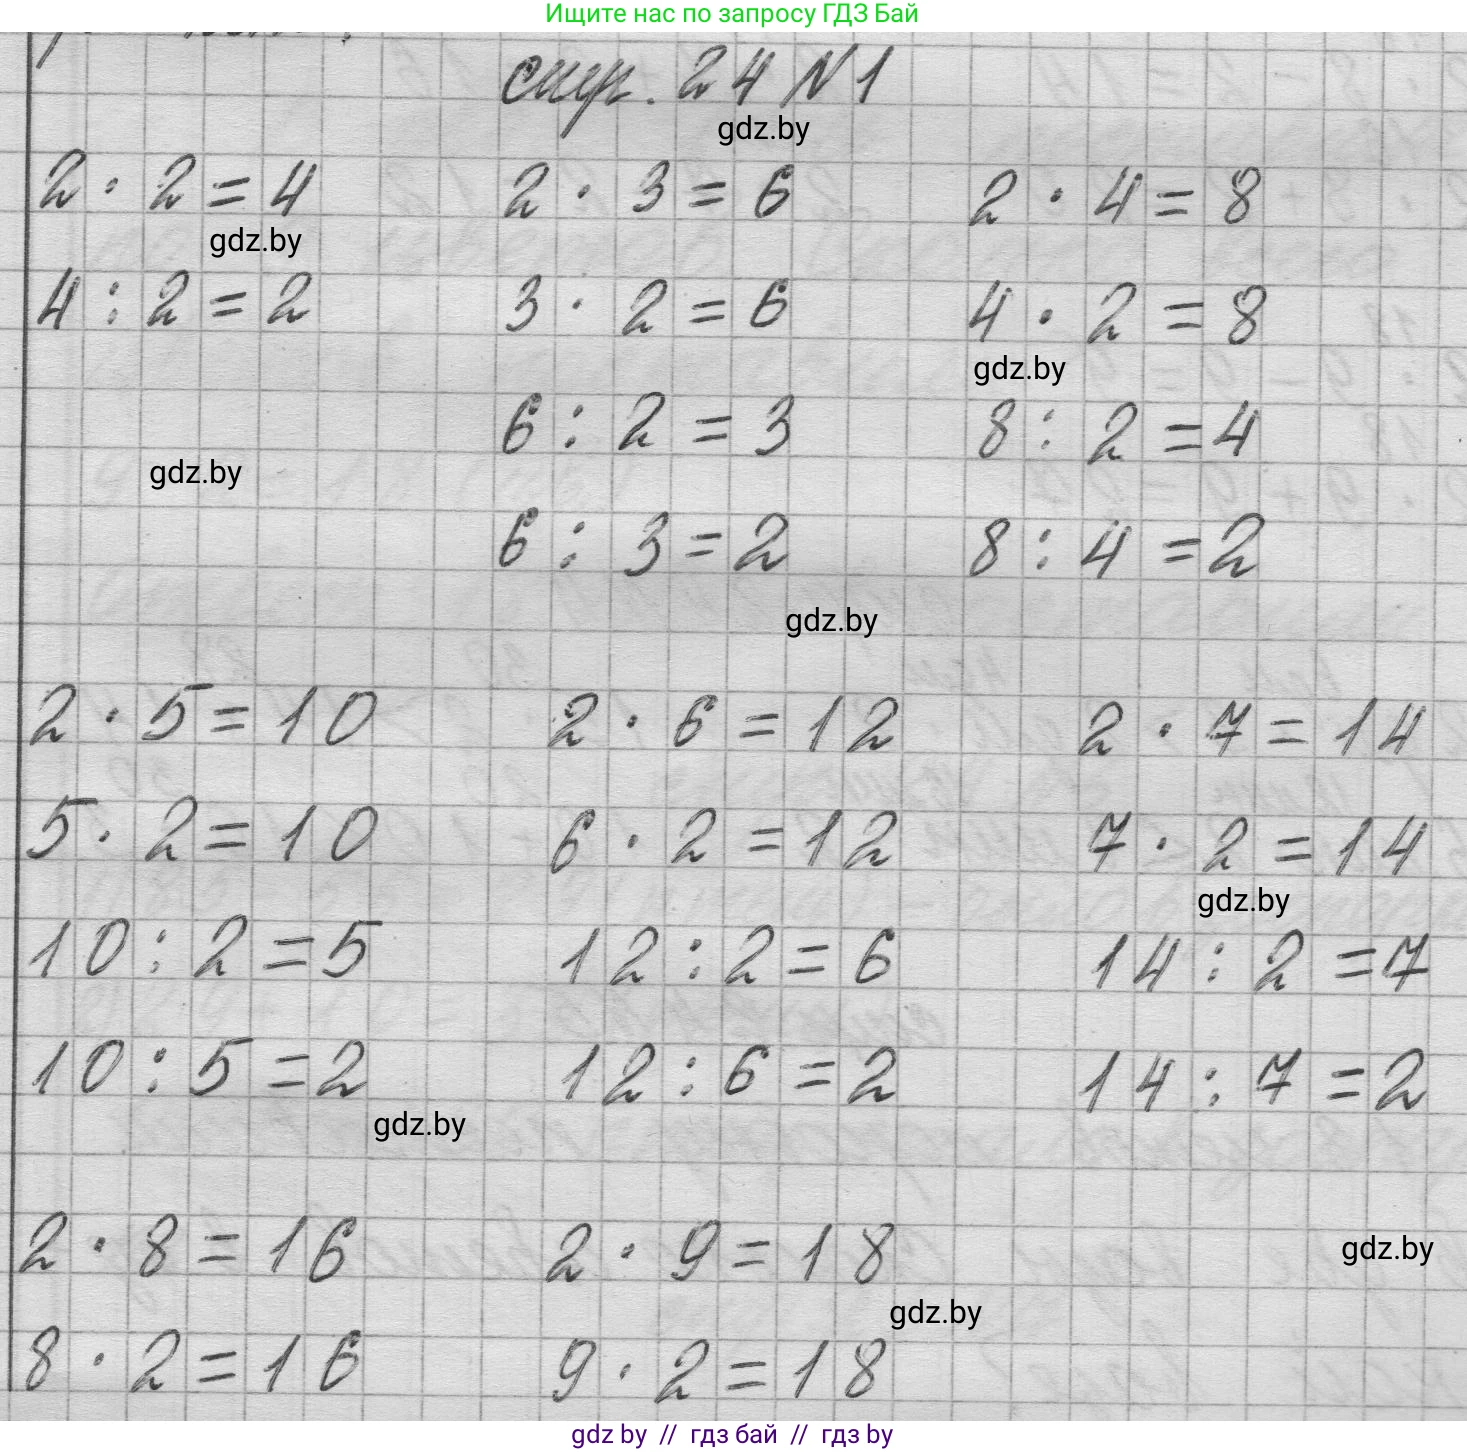 Ищите нас по запросу ГДЗ Бай
стр. 24 №1
gdz.by
2 · 2 = 4 2 · 3 = 6 2 · 4 = 8
gdz.by
4 : 2 = 2 3 · 2 = 6 4 · 2 = 8
gdz.by
6 : 2 = 3 8 : 2 = 4
gdz.by
6 : 3 = 2 8 : 4 = 2
gdz.by
2 · 5 = 10 2 · 6 = 12 2 · 7 = 14
5 · 2 = 10 6 · 2 = 12 7 · 2 = 14
gdz.by
10 : 2 = 5 12 : 2 = 6 14 : 2 = 7
10 : 5 = 2 12 : 6 = 2 14 : 7 = 2
gdz.by
2 · 8 = 16 2 · 9 = 18
gdz.by
gdz.by
8 · 2 = 16 9 · 2 = 18
gdz by // гдз бай // гдз by